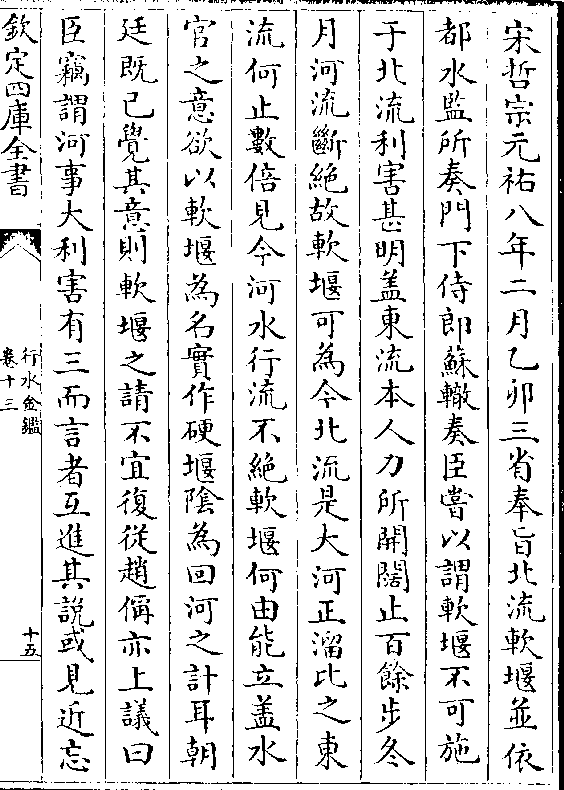 宋哲宗元祐八年二月乙卯三省奉旨北流軟堰並依
都水監所奏門下侍郎蘇轍奏臣嘗以謂軟堰不可施
于北流利害甚明盖東流本人力所開闊止百餘步冬
月河流斷絶故軟堰可為今北流是大河正溜比之東
流何止數倍見今河水行流不絶軟堰何由能立盖水
官之意欲以軟堰為名實作硬堰陰為回河之計耳朝
廷既已覺其意則軟堰之請不宜復從趙偁亦上議曰
臣竊謂河事大利害有三而言者互進其說或見近忘
欽定四庫全書
行水金鑑
卷十三
十五